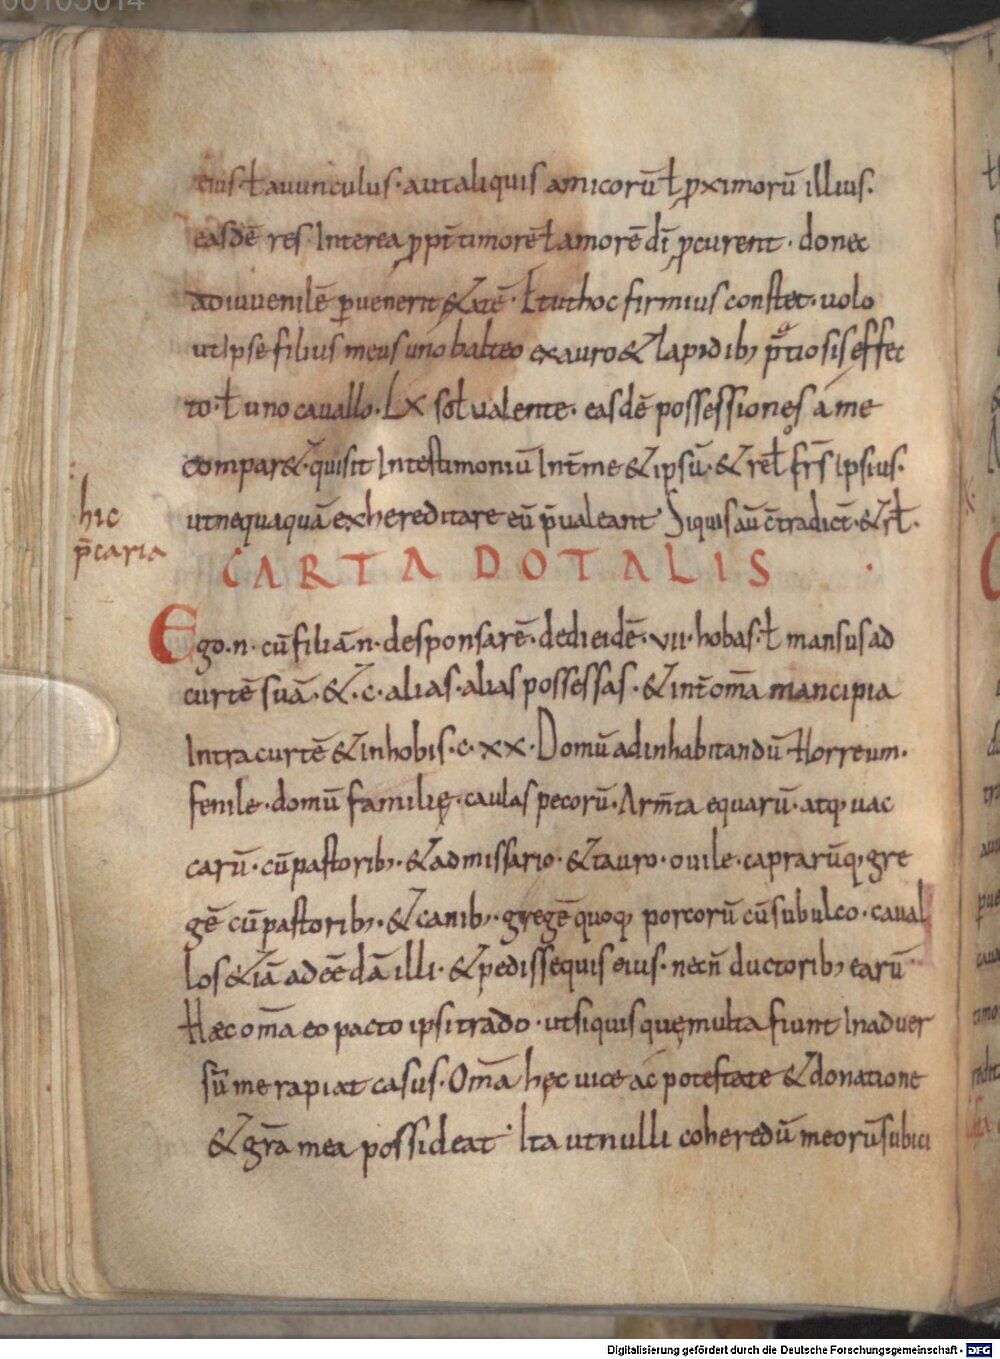 eius· ł auunculus· aut aliquis amicorū ł ꝓximorū illius·
easdē res· Interea ꝓpt̄ timorē ł amorē dī ꝓcurent· donec
ad iuuenilē ꝑuenerit &atē· Et ut hoc firmius constet· uolo
ut Ipse filius meus uno balteo ex auro & lapidib; p̄tiosis effec
to· ł uno cauallo· LX sot ualente· easdē possessiones a me
compar& quisit In testimoniū Int̄ me & ipsū· & relł fr̄s Ipsius·
ut nequaquā exhereditare eū p̄ualeant· Siquis aū c̄tradict̄· & rł·
hic
p̄caria
CARTA DOTALIS ·
Ego· n· cū filiā· n· desponsarē· dedi eidē· vii· hobas· ł mansus ad
curtē suā· &· c· alias· alias possessas· & int̄ om̄a mancipia
Intra curtē & in hobis· c· xx· Domū ad inhabitandū Horreum·
fenile· domū familię· caulas pecorū· Arm̄ta equarū· atq; uac
carū· cū pastorib;· & admissario· & tauro· ouile· caprarūq; gre
gē cū pastorib;· & canib;· gregē quoq; porcorū cū subulco· caual
los &iā ad ee dā illi· & pedissequis eius· necn̄ ductorib; earū·
Hæc om̄a eo pacto ipsi trado· ut siquis quę multa fiunt In aduer
sū me rapiat casus· Om̄a hęc uice ac potestate & donatione
& gr̄a mea possideat· Ita ut nulli coheredū meorū subici
00105014
Digitalisierung gefördert durch die Deutsche Forschungsgemeinschaft - DFG